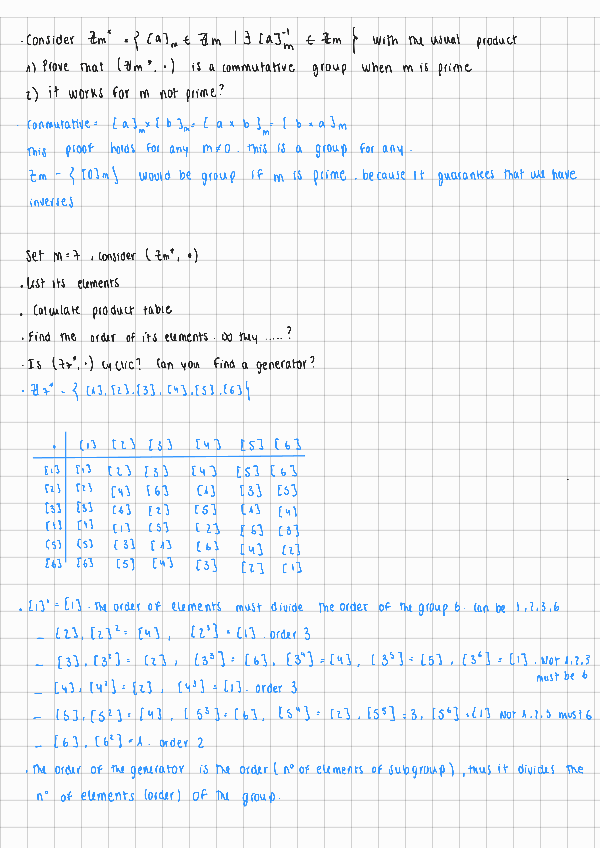 · Consider Zm* = { [a]m ∈ Zm | ∃ [a]m⁻¹ ∈ Zm } with the usual product
1) Prove that (Zm*, ·) is a commutative group when m is prime
2) it works for m not prime?
· Commutative = [a]m × [b]m = [a × b]m = [b × a]m
This proof holds for any m≠0. This is a group for any.
Zm - {[0]m} would be group if m is prime. because it guarantees that we have
inverses
Set m=7, consider (Zm*, ·)
· List its elements
· Calculate product table
· Find the order of its elements. Do they .....?
· Is (Z7*, ·) cyclic? Can you find a generator?
· Z7* = { [1], [2], [3], [4], [5], [6] }
· [1] [2] [3] [4] [5] [6]
[1] [1] [2] [3] [4] [5] [6]
[2] [2] [4] [6] [1] [3] [5]
[3] [3] [6] [2] [5] [1] [4]
[4] [4] [1] [5] [2] [6] [3]
[5] [5] [3] [1] [6] [4] [2]
[6] [6] [5] [4] [3] [2] [1]
· [1]¹ = [1]. The order of elements must divide the order of the group 6. can be 1,2,3,6
– [2], [2]² = [4], [2³] = [1]. order 3
– [3], [3²] = [2], [3³] = [6], [3⁴] = [4], [3⁵] = [5], [3⁶] = [1]. Not 1,2,3
must be 6
– [4], [4²] = [2], [4³] = [1]. order 3
– [5], [5²] = [4], [5³] = [6], [5⁴] = [2], [5⁵] = 3, [5⁶] = [1] Not 1,2,3 must 6
– [6], [6²] = 1. order 2
· The order of the generator is the order (n° of elements of subgroup), thus it divides the
n° of elements (order) of the group.